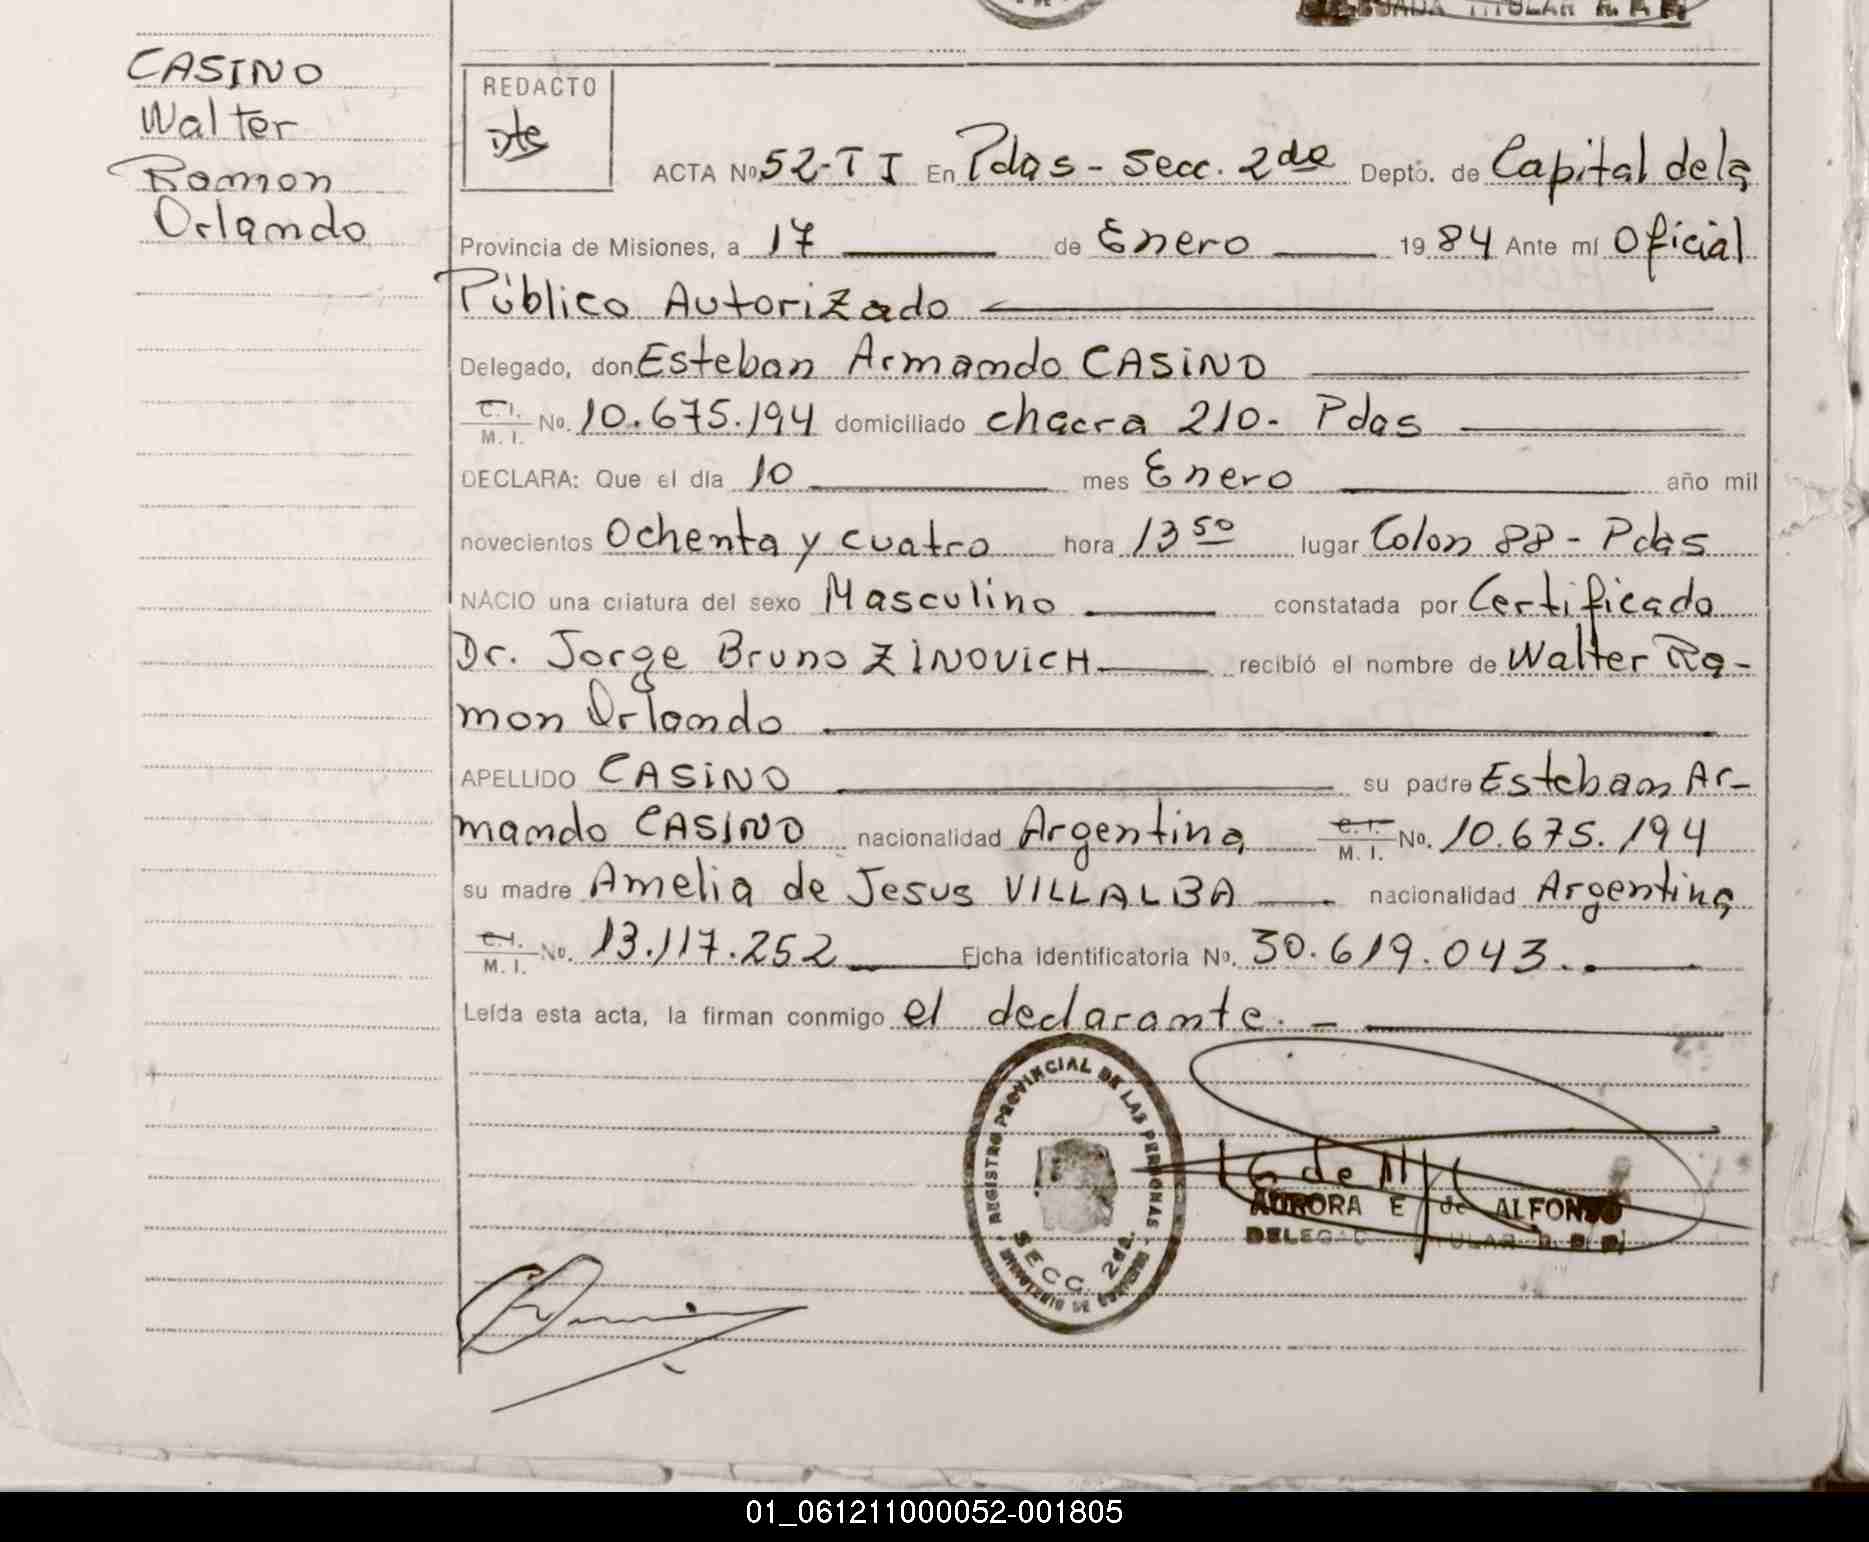 CASINO
Walter
Ramon
Orlando
REDACTO
ACTA No 52-T I En Pdas - Secc. 2da Depto. de Capital de la
Provincia de Misiones, a 17 de Enero 1984 Ante mí Oficial
Público Autorizado
Delegado, don Esteban Armando CASINO
C.I. M. I. No. 10.675.194 domiciliado chacra 210- Pdas
DECLARA: Que el día 10 mes Enero año mil
novecientos Ochenta y cuatro hora 13 50 lugar Colon 88 - Pdas
NACIO una criatura del sexo Masculino constatada por Certificado
Dr. Jorge Bruno ZINOVICH recibió el nombre de Walter Ra-
mon Orlando
APELLIDO CASINO su padre Esteban Ar-
mando CASINO nacionalidad Argentina C.I. M. I. No. 10.675.194
su madre Amelia de Jesus VILLALBA nacionalidad Argentina
C.I. M. I. No. 13.117.252 Ficha Identificatoria No. 30.619.043.
Leída esta acta, la firman conmigo el declarante. -
REGISTRO PROVINCIAL DE LAS PERSONAS
SECC. 2da.
MINISTERIO DE GOBIERNO
AURORA E de ALFONSO
TITULAR R. P. P.
01_061211000052-001805